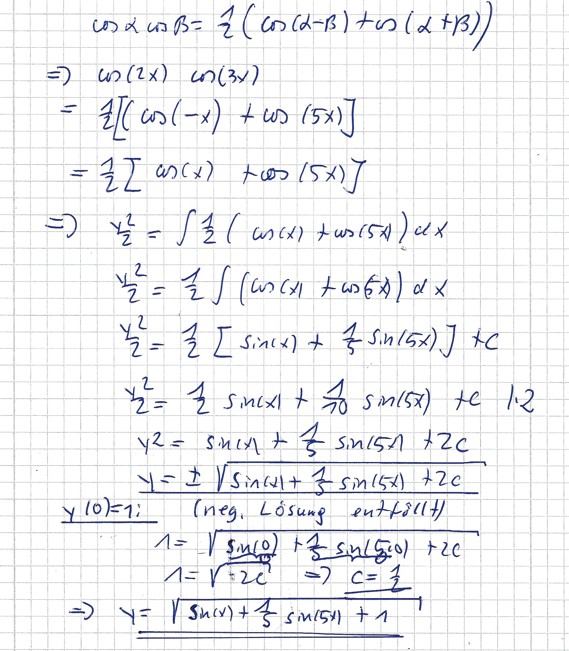 cos α cos β = 1/2 ( cos(α-β) + cos (α+β))
=> cos(2x) cos(3x)
= 1/2 [( cos(-x) + cos (5x)]
= 1/2 [ cos(x) + cos (5x)]
=> y²/2 = ∫ 1/2 ( cos(x) + cos(5x)) dx
y²/2 = 1/2 ∫ (cos(x) + cos(5x)) dx
y²/2 = 1/2 [ sin(x) + 1/5 sin(5x)] + c
y²/2 = 1/2 sin(x) + 1/10 sin(5x) + c |·2
y² = sin(x) + 1/5 sin(5x) + 2c
y = ± √(sin(x) + 1/5 sin(5x) + 2c)
y(0)=1: (neg. Lösung entfällt)
1 = √(sin(0) + 1/5 sin(5·0) + 2c)
1 = √(2c) => c = 1/2
=> y = √(sin(x) + 1/5 sin(5x) + 1)